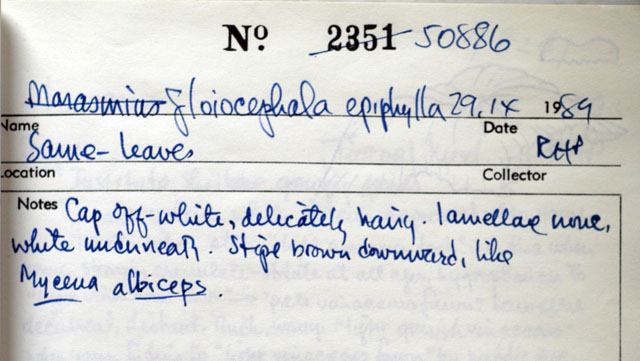 Nº 2351 50886
Marasmius Gloiocephala epiphylla 29.IX 1989
Name Date
Same - leaves RHP
Location Collector
Notes Cap off-white, delicately hairy. lamellae none,
white underneath. Stipe brown downward, like
Mycena albiceps.